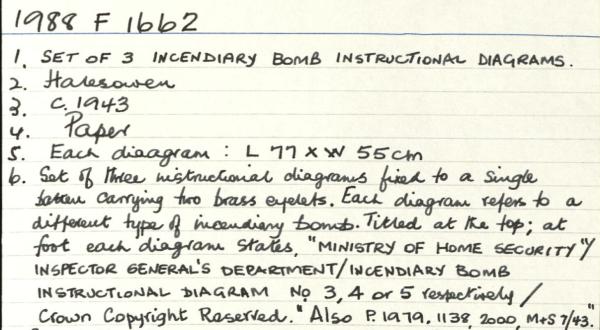 1988 F 1662
1. SET OF 3 INCENDIARY BOMB INSTRUCTIONAL DIAGRAMS.
2. Halesowen
3. C. 1943
4. Paper
5. Each diaagram : L 77 x W 55cm
6. Set of three instructional diagrams fixed to a single
batten carrying two brass eyelets. Each diagram refers to a
different type of incendiary bomb. Titled at the top; at
foot each diagram states, "MINISTRY OF HOME SECURITY"/
INSPECTOR GENERAL'S DEPARTMENT/INCENDIARY BOMB
INSTRUCTIONAL DIAGRAM No 3, 4 or 5 respectively/
Crown Copyright Reserved." Also P.1979. 1138, 2000, M+S 7/43."